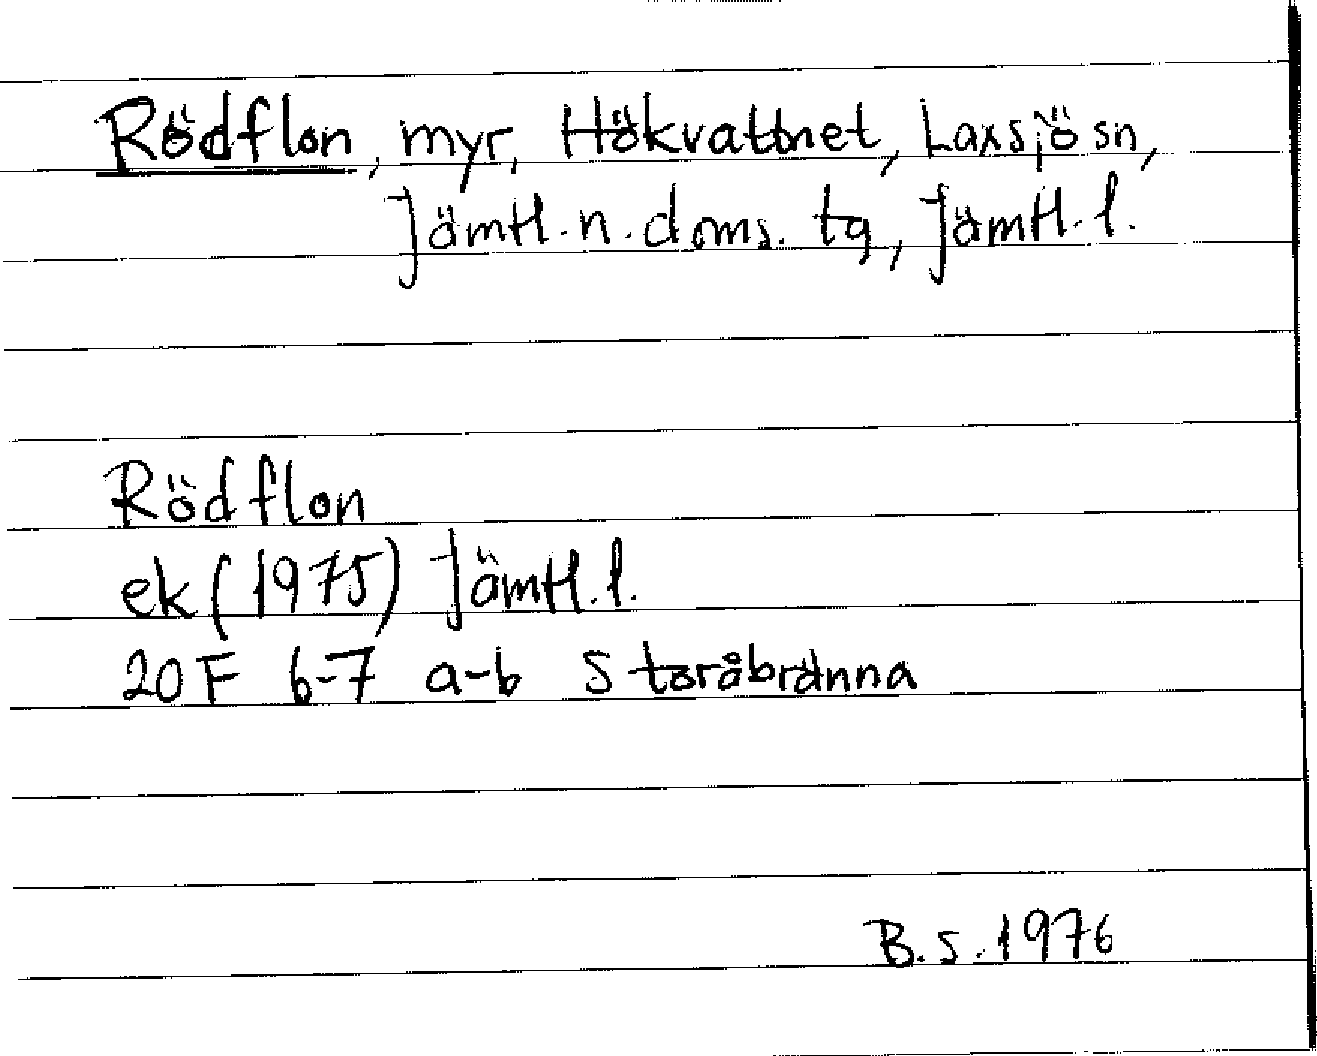 Rödflon, myr, Hökvattnet, Laxsjö sn,
Jämtl. n. doms. tg, Jämtl. l.
Rödflon
ek (1975) Jämtl. l.
20 F 6-7 a-b Storåbränna
B. S. 1976